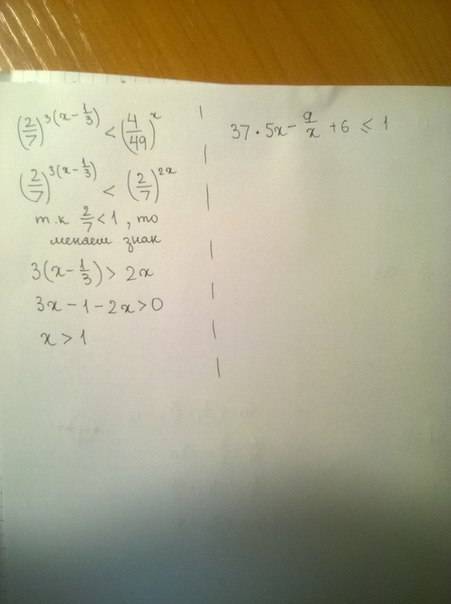 (2/7)^3(x-1/3) < (4/49)^x
(2/7)^3(x-1/3) < (2/7)^2x
т.к 2/7<1, то
меняем знак
3(x-1/3)> 2x
3x-1-2x>0
x>1
37·5x-9/x+6⩽1